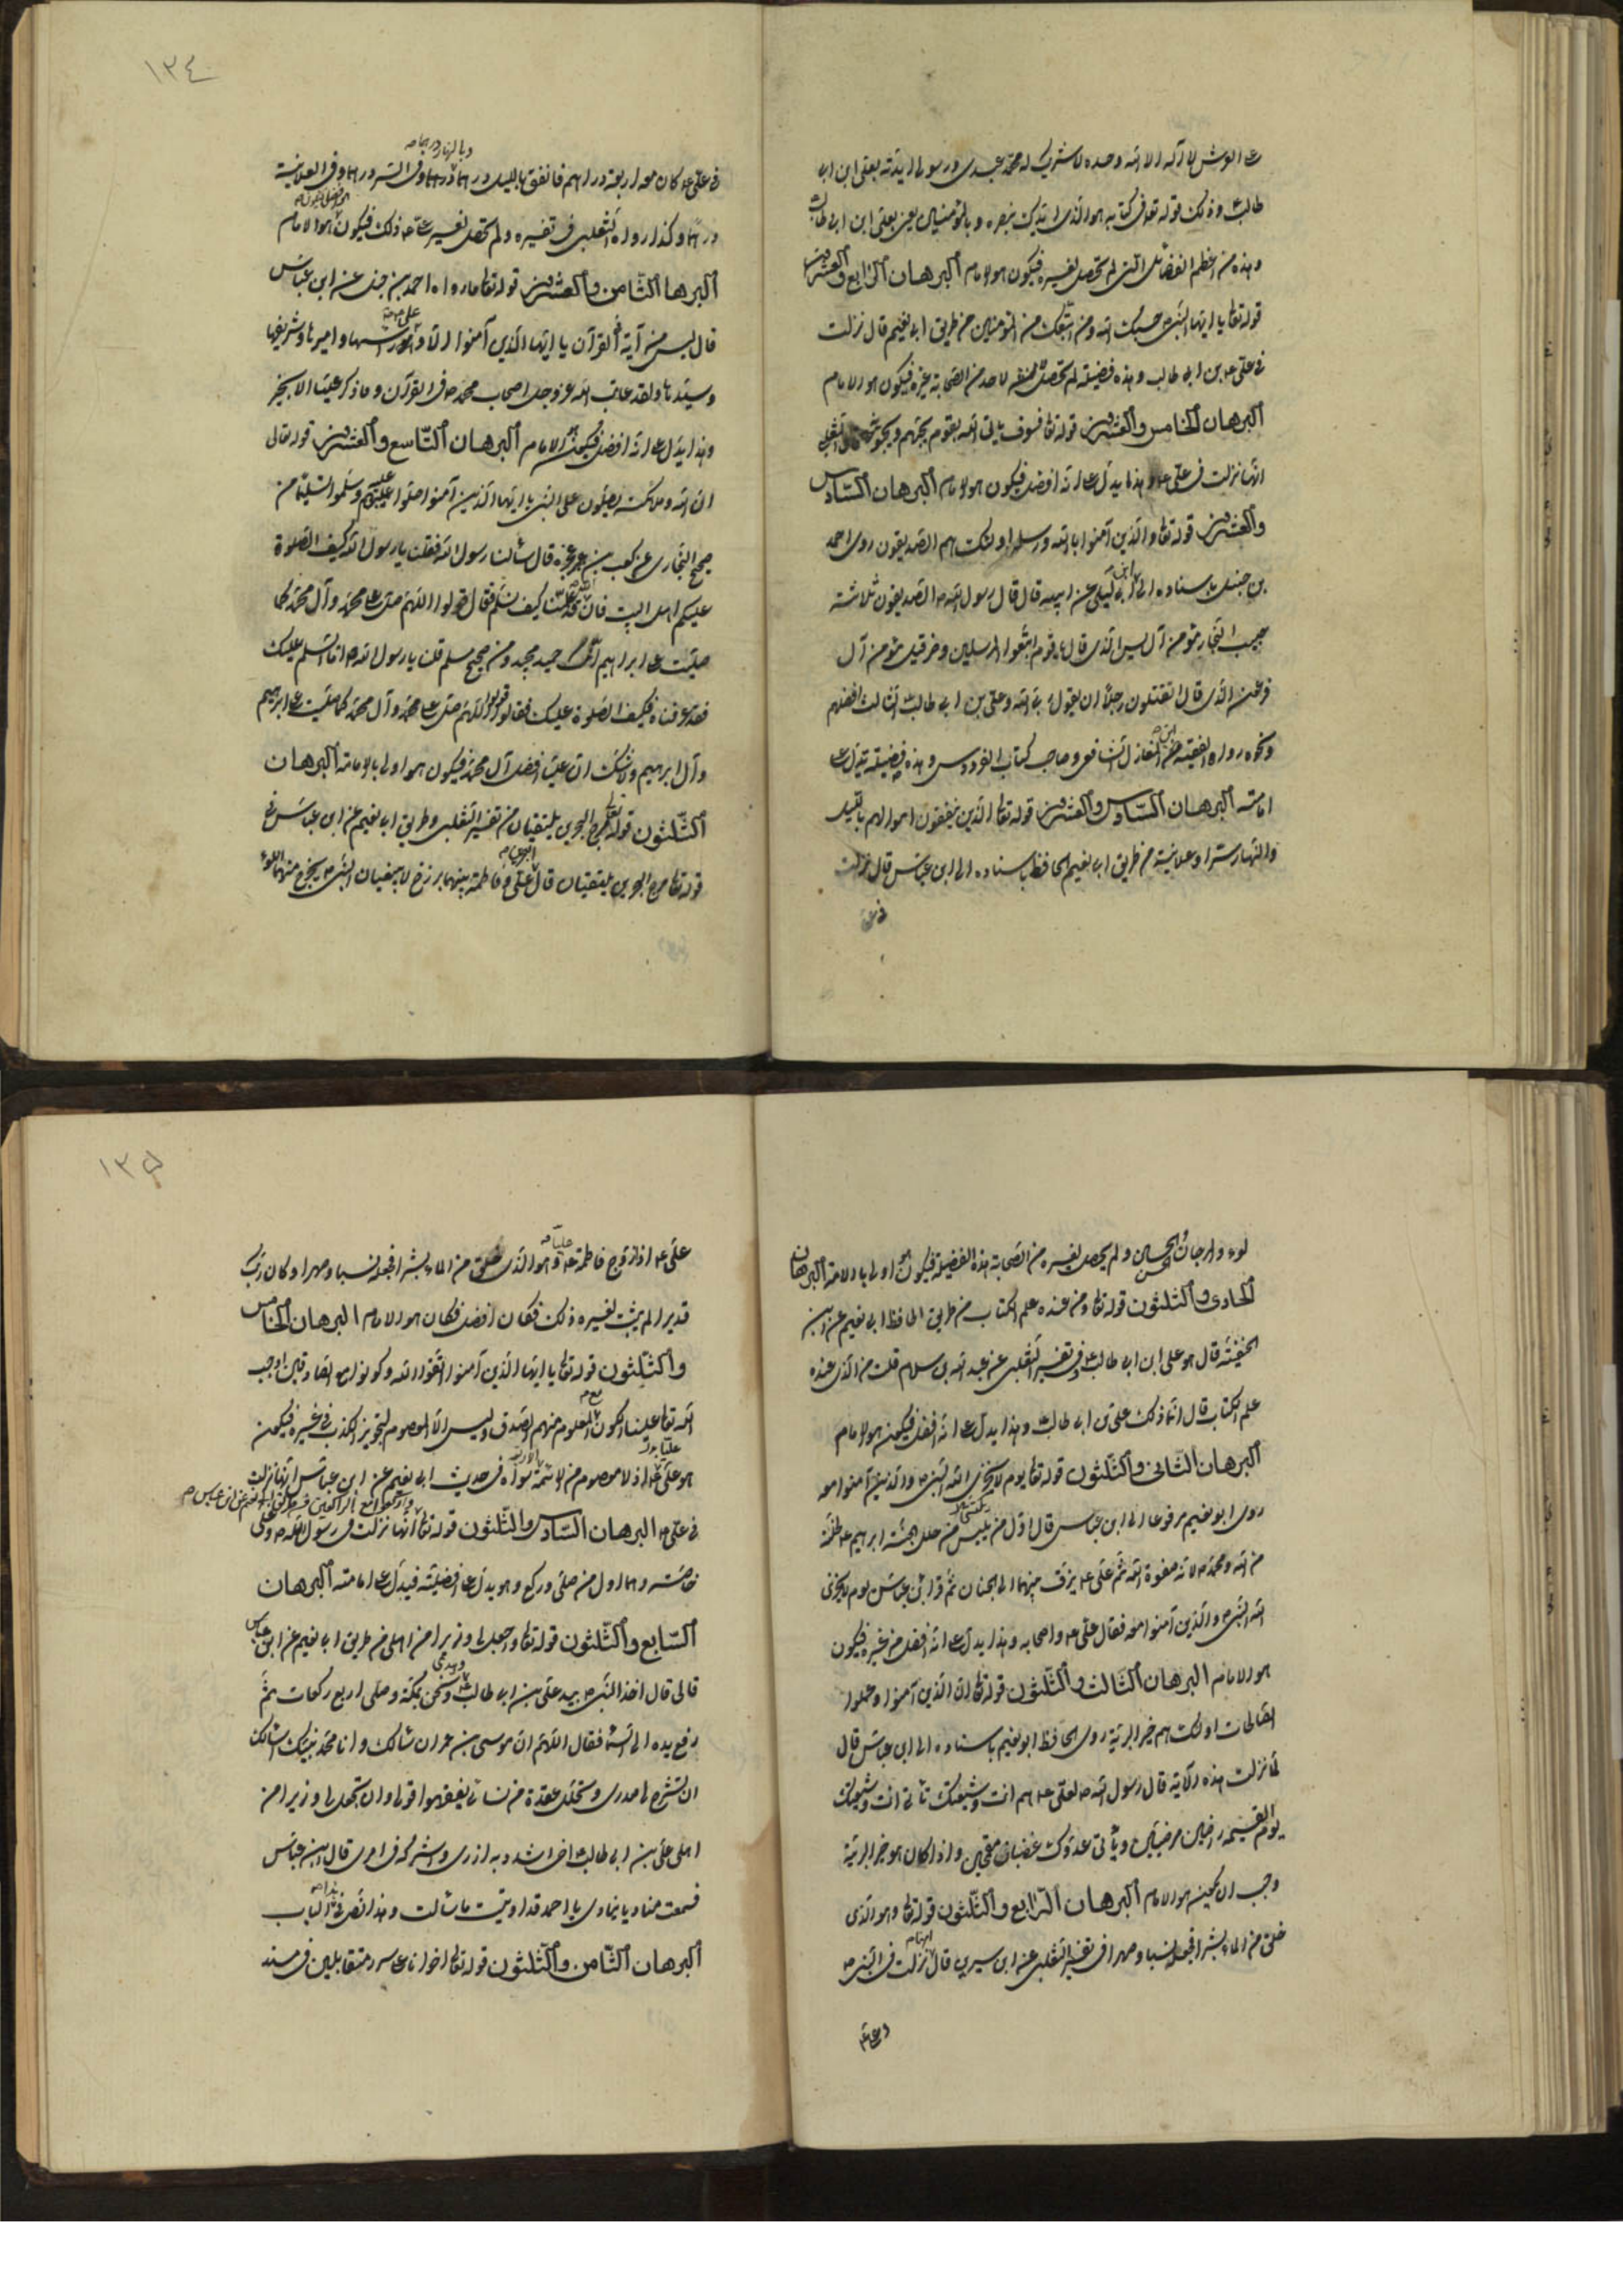 على العرش لا اله الا الله وحده لا شريك له محمد عبدى ورسولى ايدته بعلى ابن ابى
طالب وذلك قوله تعالى فى كتابه هو الذى ايدك بنصره وبالمؤمنين يعنى بعلى ابن ابى طالب
وهذه من اعظم الفضائل التى لم تحصل لغيره فيكون هو الامام البرهان الرابع والعشرون
قوله تعالى يا ايها النبى حسبك الله ومن اتبعك من المؤمنين من طريق ابى نعيم قال نزلت
فى على بن ابى طالب وهذه فضيلة لم تحصل لاحد من الصحابة غيره فيكون هو الامام
البرهان الخامس والعشرون قوله تعالى فسوف ياتى الله بقوم يحبهم ويحبونه الثعلبى
انها نزلت فى على وهذا يدل على انه افضل فيكون هو الامام البرهان السادس
والعشرون قوله تعالى والذين آمنوا بالله ورسله اولئك هم الصديقون روى احمد
بن حنبل باسناده الى ابن ابى ليلى عن ابيه قال قال رسول الله ص الصديقون ثلاثة
حبيب النجار مؤمن آل يس الذى قال يا قوم اتبعوا المرسلين وحزقيل مؤمن آل
فرعون الذى قال اتقتلون رجلا ان يقول ربى الله وعلى بن ابى طالب الثالث افضلهم
ونحوه رواه الفقيه ابن المغازلى الشافعى وصاحب كتاب الفردوس وهذه فضيلة تدل على
امامته البرهان السادس والعشرون قوله تعالى الذين ينفقون اموالهم بالليل
والنهار سرا وعلانية من طريق ابى نعيم الحافظ باسناده الى ابن عباس قال نزلت
فى على
١٣٤
وبالنهار درهما
فى على كان معه اربعة دراهم فانفق بالليل درهما وفى السر درهما وفى العلانية
درهما وكذا رواه الثعلبى فى تفسيره ولم تحصل لغير على ذلك فيكون هو الامام
البرهان الثامن والعشرون قوله تعالى ما رواه احمد بن حنبل عن ابن عباس
قال ليس من آية فى القرآن يا ايها الذين آمنوا الا وعلى راسها واميرها وشريفها
وسيدها ولقد عاتب الله عز وجل اصحاب محمد ص فى القرآن وما ذكر عليا الا بخير
وهذا يدل على انه افضل فيكون هو الامام البرهان التاسع والعشرون قوله تعالى
ان الله وملائكته يصلون على النبى يا ايها الذين آمنوا صلوا عليه وسلموا تسليما من
صحيح البخارى عن كعب بن عجرة قال سألنا رسول الله فقلنا يا رسول الله كيف الصلوة
عليكم اهل البيت فان الله علمنا كيف نسلم فقال قولوا اللهم صل على محمد وآل محمد كما
صليت على ابراهيم انك حميد مجيد ومن صحيح مسلم قلنا يا رسول الله اما السلم عليك
فقد عرفناه فكيف الصلوة عليك فقال قولوا اللهم صل على محمد وآل محمد كما صليت على ابراهيم
وآل ابرهيم ولا شك ان عليا افضل آل محمد فيكون هو اولى بالامامة البرهان
الثلثون قوله تعالى مرج البحرين يلتقيان من تفسير الثعلبى وطريق ابى نعيم عن ابن عباس فى
قوله تعالى مرج البحرين يلتقيان قال على وفاطمة بينهما برزخ لا يبغيان النبى ص يخرج منهما اللؤلؤ
لؤء والمرجان الحسن والحسين ولم يحصل لغيره من الصحابة هذه الفضيلة فيكون هو اولى بالامامة البرهان
الحادى والثلثون قوله تعالى ومن عنده علم الكتاب من طريق الحافظ ابى نعيم عن ابن
الحنفية قال هو على ابن ابى طالب وفى تفسير الثعلبى عن عبد الله بن سلام قلت من الذى عنده
علم الكتاب قال انما ذلك على بن ابى طالب وهذا يدل على انه افضل فيكون هو الامام
البرهان الثانى والثلثون قوله تعالى يوم لا يخزى الله النبى والذين آمنوا معه
روى ابو نعيم مرفوعا الى ابن عباس قال اول من يلبس من حلل الجنة ابرهيم ع لخلته
من الله ومحمد ص لانه صفوة الله ثم على ع يزف بينهما الى الجنان ثم قرأ ابن عباس يوم لا يخزى
الله النبى والذين آمنوا معه فقال على ع واصحابه وهذا يدل على انه افضل من غيره فيكون
هو الامام البرهان الثالث والثلثون قوله تعالى ان الذين آمنوا وعملوا
الصالحات اولئك هم خير البرية روى الحافظ ابو نعيم باسناده الى ابن عباس قال
لما نزلت هذه الآية قال رسول الله ص لعلى ع هم انت وشيعتك تأتى انت وشيعتك
يوم القيمة راضين مرضيين ويأتى عدوك غضبان مقمحين واذا كان هو خير البرية
وجب ان يكون هو الامام البرهان الرابع والثلثون قوله تعالى وهو الذى
خلق من الماء بشرا فجعله نسبا وصهرا فى تفسير الثعلبى عن ابن سيرين قال نزلت فى النبى ص
وعلى
١٣٥
على ع اذ زوج فاطمة عليا وهو الذى خلق من الماء بشرا فجعله نسبا وصهرا وكان ربك
قديرا لم يثبت لغيره ذلك فكان افضل فكان هو الامام البرهان الخامس
والثلثون قوله تعالى يا ايها الذين آمنوا اتقوا الله وكونوا مع الصادقين اوجب
الله تعالى علينا الكون مع المعلوم منهم الصدق وليس الا المعصوم لتجويز الكذب فى غيره فيكون
هو على اذ لا معصوم من الاربعة سواه فى حديث ابى نعيم عن ابن عباس انها نزلت
واركعوا مع الراكعين من طريق ابى نعيم عن ابن عباس
فى على البرهان السادس والثلثون قوله تعالى انها نزلت فى رسول الله ص وعلى
خاصة وهما اول من صلى وركع وهو يدل على افضليته فيدل على امامته البرهان
السابع والثلثون قوله تعالى واجعل لى وزيرا من اهلى من طريق ابى نعيم عن ابن عباس
قال قال اخذ النبى ص بيد على بن ابى طالب وبيدى ونحن بمكة وصلى اربع ركعات ثم
رفع يده الى السماء فقال اللهم ان موسى بن عمران سالك وانا محمد نبيك اسالك
ان تشرح لى صدرى وتحلل عقدة من لسانى يفقهوا قولى وان تجعل لى وزيرا من
اهلى على بن ابى طالب اخى اشدد به ازرى واشركه فى امرى قال ابن عباس
فسمعت مناديا ينادى يا احمد قد اوتيت ما سألت وهذا نص فى الباب
البرهان الثامن والثلثون قوله تعالى اخوانا على سرر متقابلين فى مسند